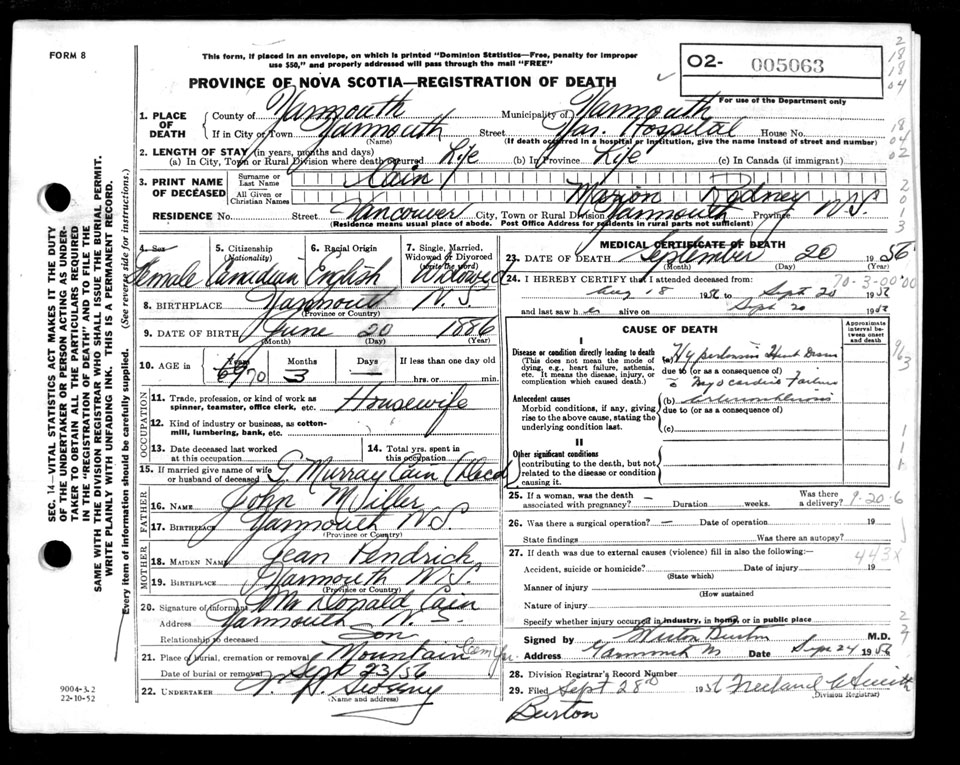 FORM 8
This form, if placed in an envelope, on which is printed "Dominion Statistics—Free, penalty for improper
use $50," and properly addressed will pass through the mail "FREE"
PROVINCE OF NOVA SCOTIA—REGISTRATION OF DEATH
O2- 005063
For use of the Department only
1. PLACE OF DEATH { County of Yarmouth Municipality of Yarmouth
If in City or Town Yarmouth Street Yar. Hospital House No.
(Name) (If death occurred in a hospital or institution, give the name instead of street and number)
2. LENGTH OF STAY (in years, months and days)
(a) In City, Town or Rural Division where death occurred Life (b) In Province Life (c) In Canada (if immigrant)
3. PRINT NAME OF DECEASED { Surname or Last Name Cain
All Given or Christian Names Marion Rodney
RESIDENCE No. Street Vancouver City, Town or Rural Division Yarmouth Province N.S.
(Residence means usual place of abode. Post Office Address for residents in rural parts not sufficient)
4. Sex Female
5. Citizenship (Nationality) Canadian
6. Racial Origin English
7. Single, Married, Widowed or Divorced (write the word) Widowed
8. BIRTHPLACE Yarmouth N.S.
(Province or Country)
9. DATE OF BIRTH June 20 1886
(Month) (Day) (Year)
10. AGE in Years 69 70 Months 3 Days — If less than one day
hrs. or min.
OCCUPATION
11. Trade, profession, or kind of work as spinner, teamster, office clerk, etc. Housewife
12. Kind of industry or business, as cotton-mill, lumbering, bank, etc.
13. Date deceased last worked at this occupation
14. Total yrs. spent in this occupation
15. If married give name of wife or husband of deceased G. Murray Cain (Decd)
FATHER
16. NAME John Miller
17. BIRTHPLACE Yarmouth N.S.
(Province or Country)
MOTHER
18. MAIDEN NAME Jean Kendrick
19. BIRTHPLACE Yarmouth N.S.
(Province or Country)
20. Signature of informant Donald Cain
Address Yarmouth N.S.
Relationship to deceased Son
21. Place of burial, cremation or removal Mountain Cem Yar.
Date of burial or removal Sept 23/56
22. UNDERTAKER Sweeny
(Name and address)
MEDICAL CERTIFICATE OF DEATH
23. DATE OF DEATH September 20 1956
(Month) (Day) (Year)
24. I HEREBY CERTIFY that I attended deceased from
Aug 18 1956 to Sept 20 1956
70-3-00'00
and last saw her alive on Sept 20 1956
CAUSE OF DEATH
Approximate interval between onset and death
I
Disease or condition directly leading to death
This does not mean the mode of dying, e.g., heart failure, asthenia, etc. It means the disease, injury, or complication which caused death.
(a) Hypertensive Heart Disease
due to (or as a consequence of)
Myocardial Failure
Antecedent causes
Morbid conditions, if any, giving rise to the above cause, stating the underlying condition last.
(b) Arteriosclerosis
due to (or as a consequence of)
(c)
II
Other significant conditions
contributing to the death, but not related to the disease or condition causing it.
25. If a woman, was the death associated with pregnancy? — Duration weeks. Was there a delivery?
9-20-6
26. Was there a surgical operation? — Date of operation 19
State findings Was there an autopsy?
27. If death was due to external causes (violence) fill in also the following:—
443X
Accident, suicide or homicide? Date of injury 19
(State which)
Manner of injury
(How sustained)
Nature of injury
Specify whether injury occurred in industry, in home, or in public place
Signed by Burton M.D.
Address Yarmouth NS Date Sept 24 1956
28. Division Registrar's Record Number
29. Filed Sept 28th 1956
(Division Registrar)
Burton
SEC. 14—VITAL STATISTICS ACT MAKES IT THE DUTY
OF THE UNDERTAKER OR PERSON ACTING AS UNDER-
TAKER TO OBTAIN ALL THE PARTICULARS REQUIRED
IN THE "REGISTRATION OF DEATH" AND TO FILE THE
SAME WITH THE DIVISION REGISTRAR WHO SHALL ISSUE THE BURIAL PERMIT.
WRITE PLAINLY WITH UNFADING INK. THIS IS A PERMANENT RECORD.
Every item of information should be carefully supplied. (See reverse side for instructions.)
9004-3.2
22-10-52